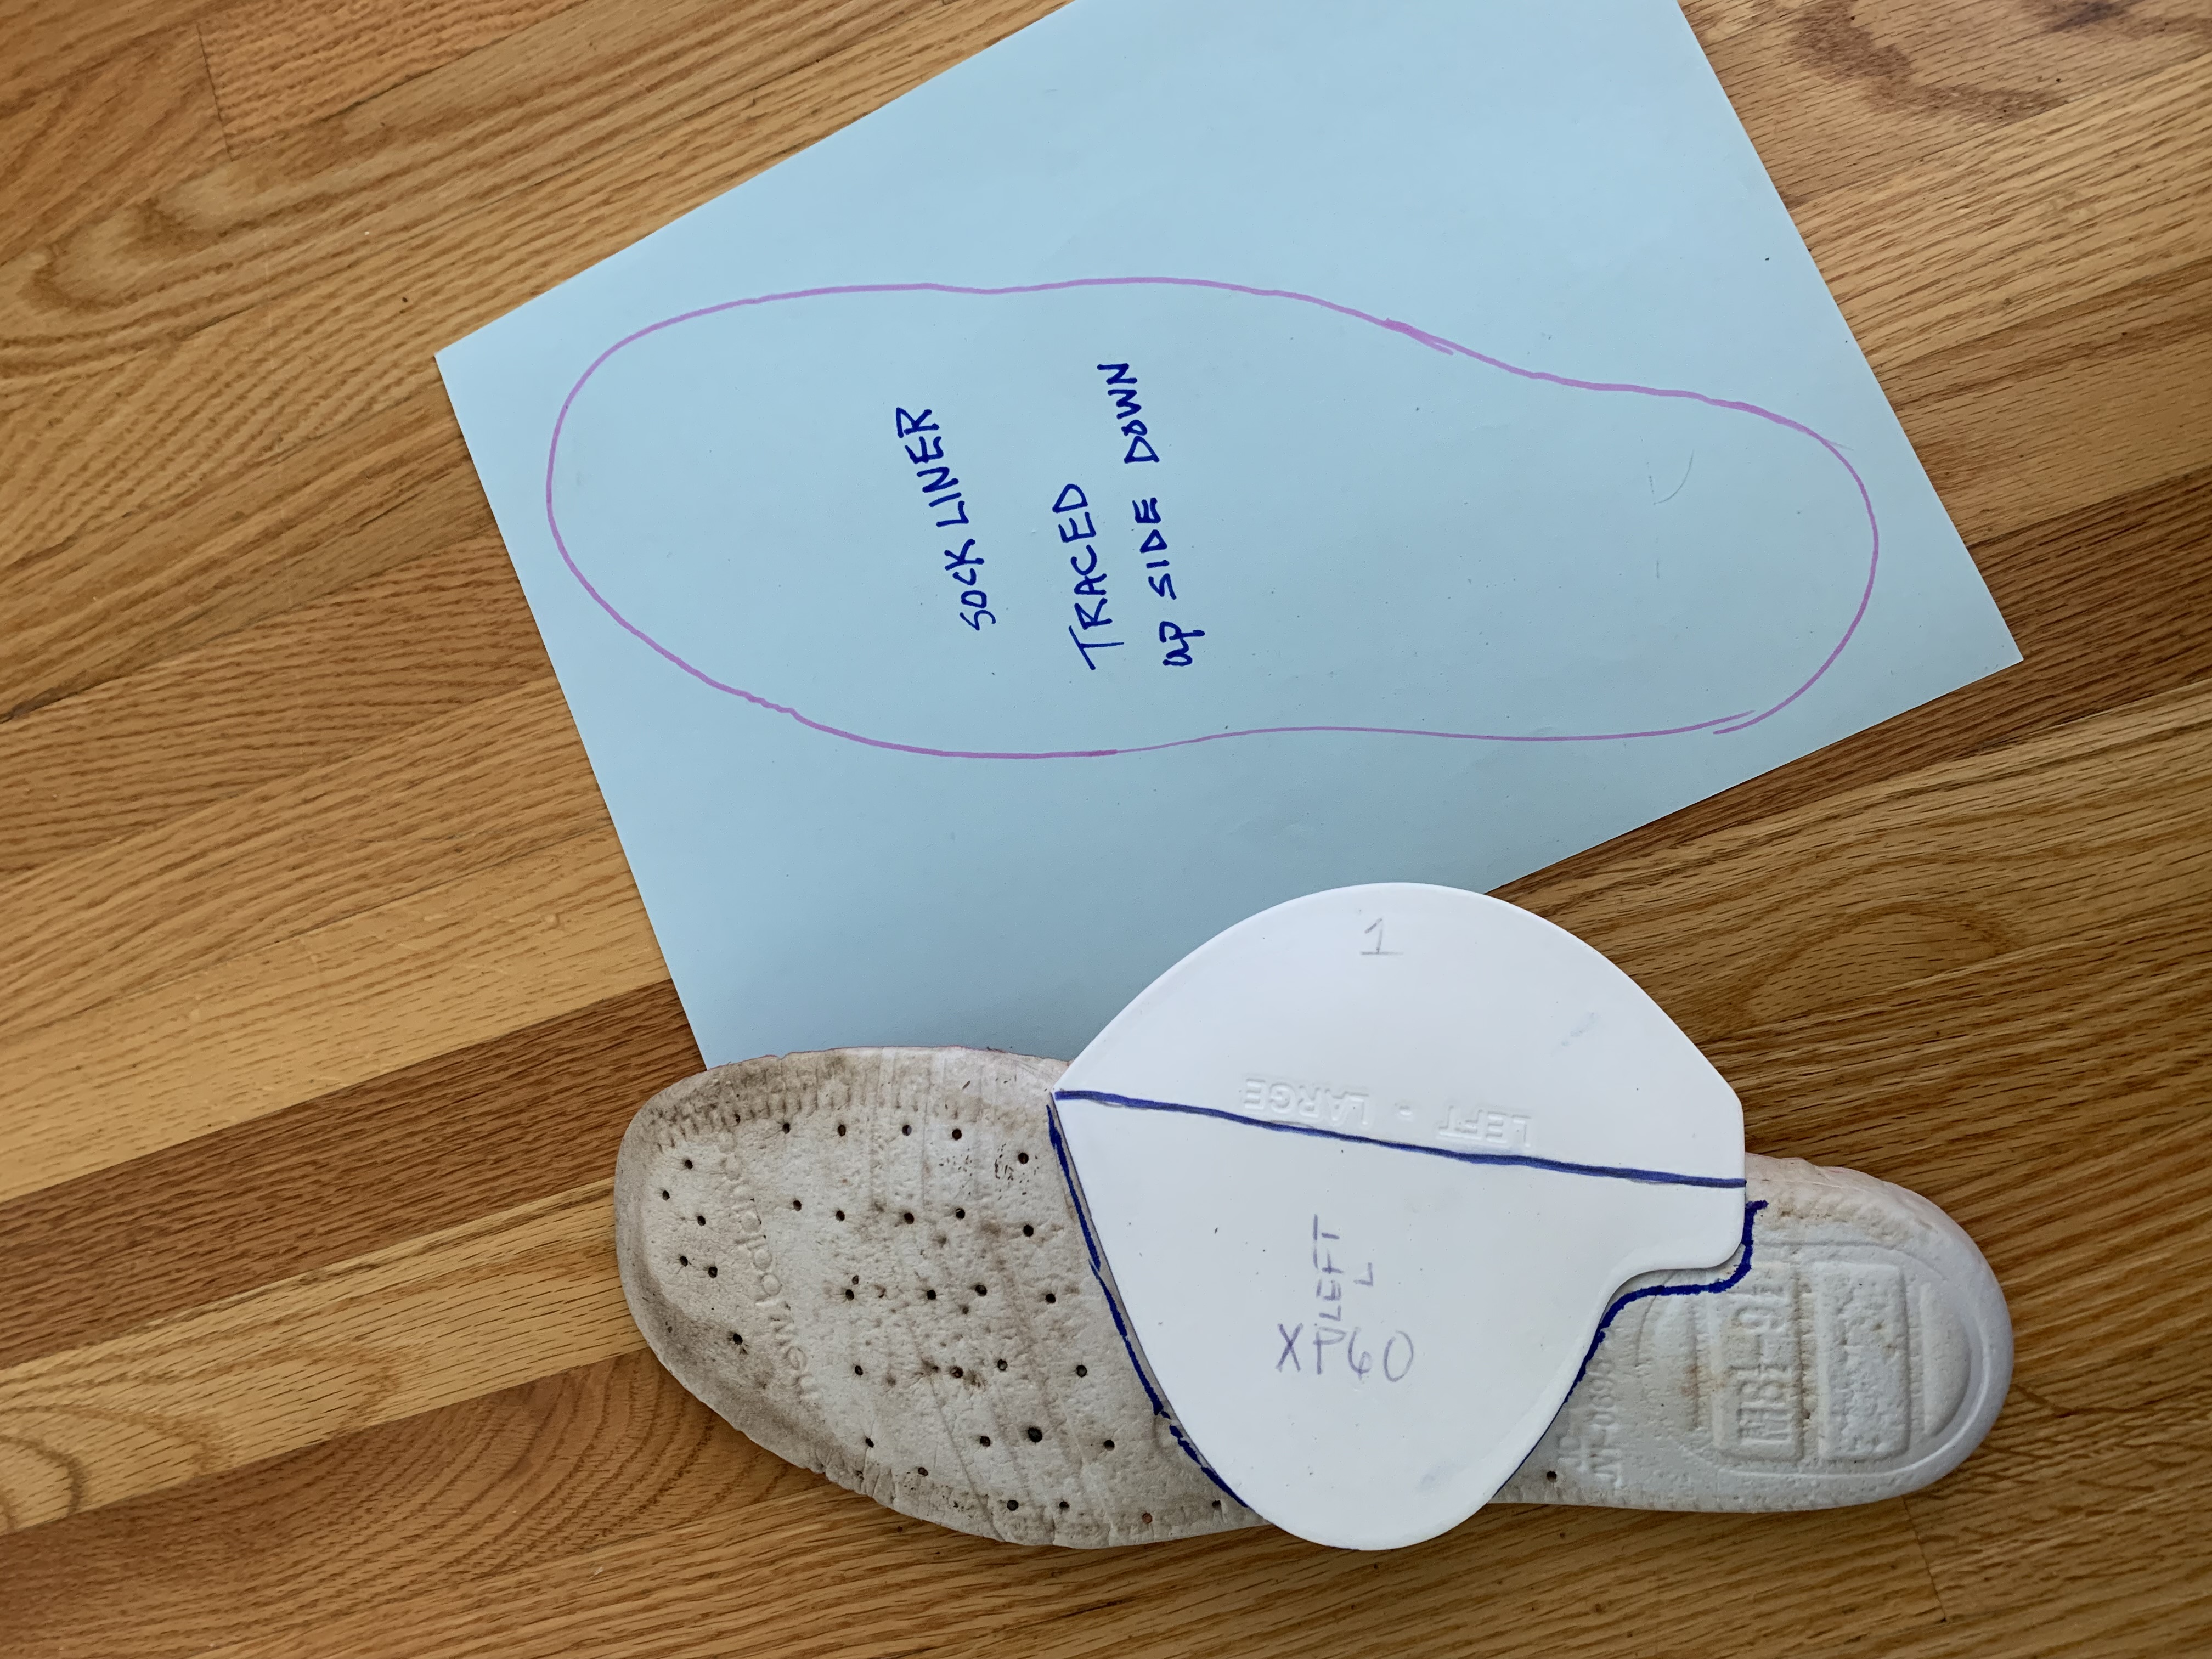 new balance
XP60
LEFT
L
LEFT - LARGE
1
M8½-9½
SOCK LINER
TRACED
UP SIDE DOWN